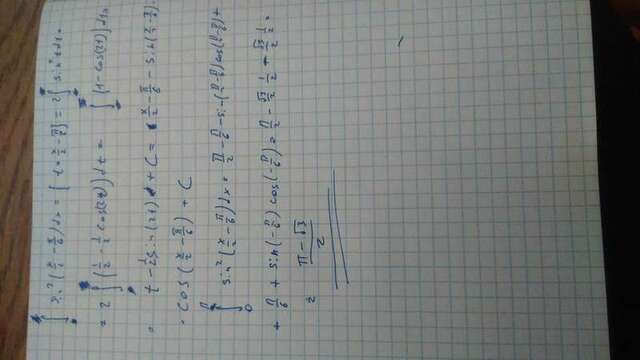 ∫ sin²(x/2 − π/6)dx = [t = x/2 − π/6] = 2∫ sin²t dt =
= 2∫(1/2 − 1/2 cos(2t))dt = ∫(1−cos(2t))dt
= t − 1/2 sin(2t) + C = x/2 − π/6 − sin(x/2 − π/6)·
· cos(x/2 − π/6) + C
∫₀^π sin²(x/2 − π/6)dx = π/2 − π/6 − sin(π/2 − π/6)cos(π/2 − π/6) +
+ π/6 + sin(−π/6) cos(−π/6) = π/2 − √3/2 1/2 − √3/2 1/2 =
= (π − √3)/2